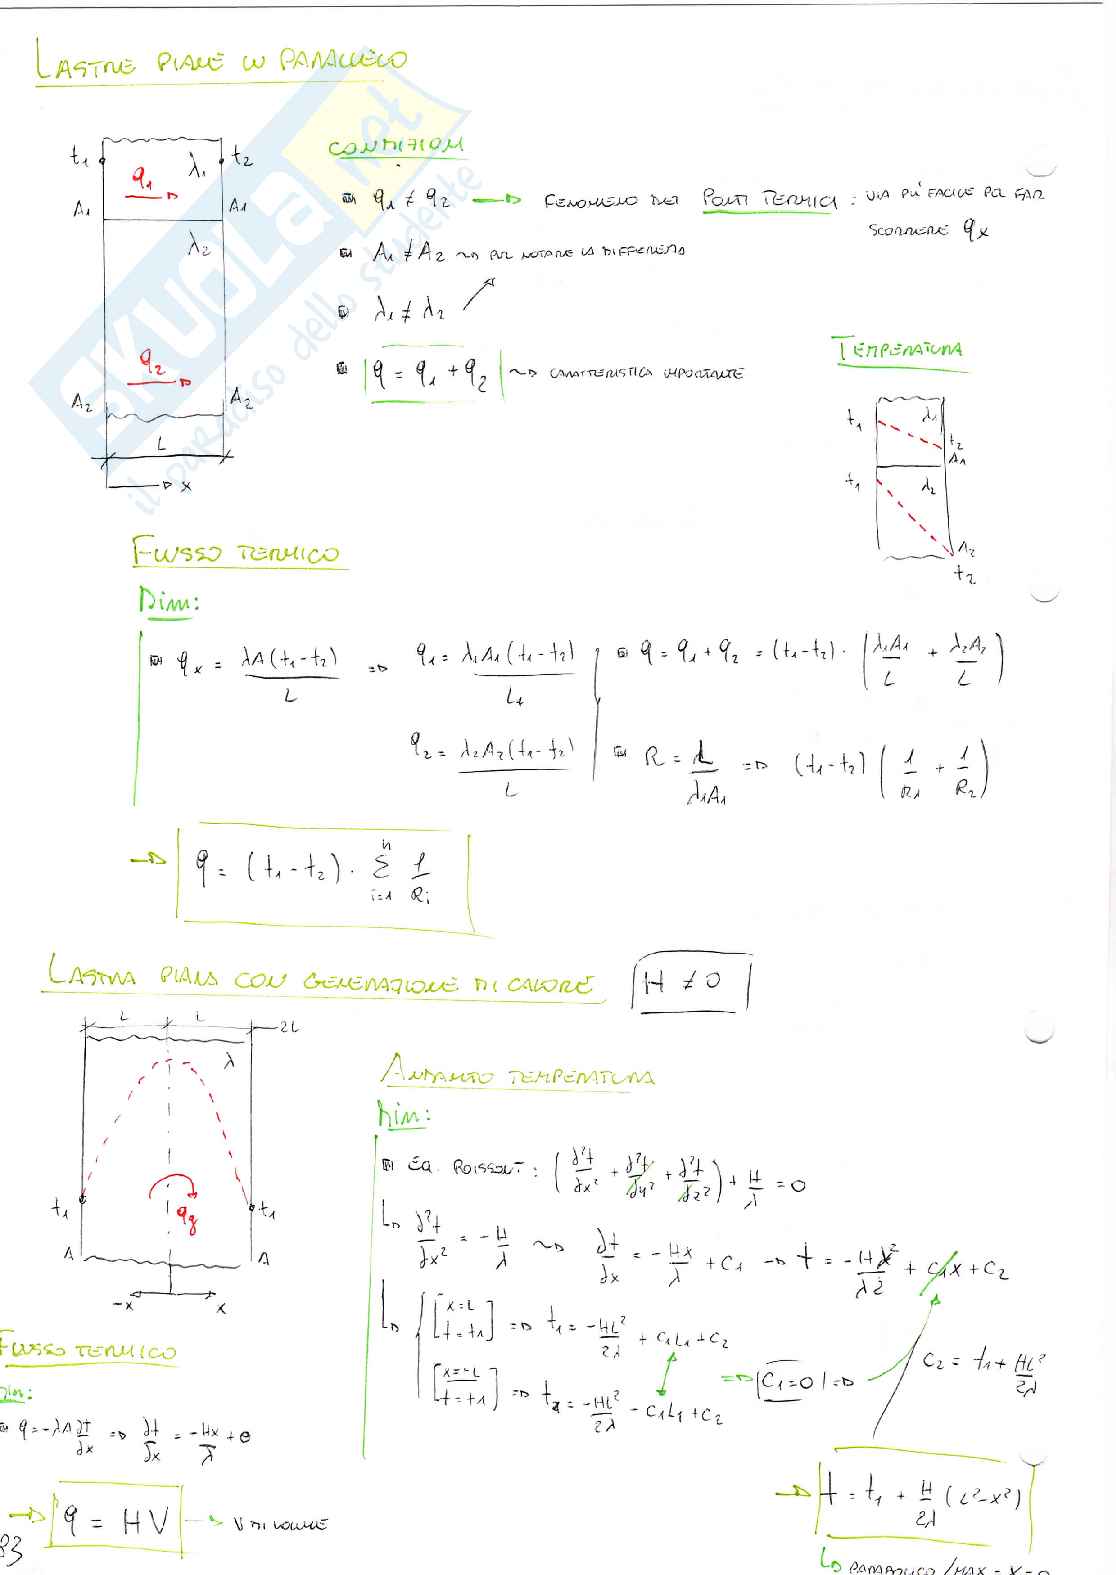 LASTRE PIANE IN PARALLELO
t1 λ1 t2
q1
A1 A1
λ2
q2
A2 A2
L
x
CONDIZIONI
q1 ≠ q2 → FENOMENO DEI PONTI TERMICI : VIA PIÙ FACILE PER FAR
SCORRERE qx
A1 ≠ A2 ~> PER NOTARE LA DIFFERENZA
λ1 ≠ λ2
q = q1 + q2 ~> CARATTERISTICA IMPORTANTE
TEMPERATURA
t1 λ1
t2
A1
t1 λ2
A2
t2
SKUOLA.net
il paradiso dello studente
FLUSSO TERMICO
Dim:
qx = λA(t1-t2)/L => q1 = λ1A1(t1-t2)/L1
q2 = λ2A2(t1-t2)/L
q = q1 + q2 = (t1-t2) · (λ1A1/L + λ2A2/L)
R = L/λ1A1 => (t1-t2) (1/R1 + 1/R2)
→ q = (t1-t2) · Σ i=1 n 1/Ri
LASTRA PIANA CON GENERAZIONE DI CALORE H ≠ 0
L L 2L
λ
t1 qg t1
A A
-x x
ANDAMENTO TEMPERATURA
Dim:
EQ. POISSON: (∂²t/∂x² + ∂²t/∂y² + ∂²t/∂z²) + H/λ = 0
∂²t/∂x² = -H/λ ~> ∂t/∂x = -Hx/λ + C1 → t = -Hx²/λ2 + C1x + C2
[x=L t=t1] => t1 = -HL²/2λ + C1L1 + C2
[x=-L t=t1] => t1 = -HL²/2λ - C1L1 + C2
=> C1=0 => C2 = t1 + HL²/2λ
→ t = t1 + H/2λ (L²-x²)
PARABOLICO / MAX = x = 0
FLUSSO TERMICO
Dim:
q = -λA ∂T/∂x => ∂t/∂x = -Hx/λ + 0
→ q = HV → V DI VOLUME
83